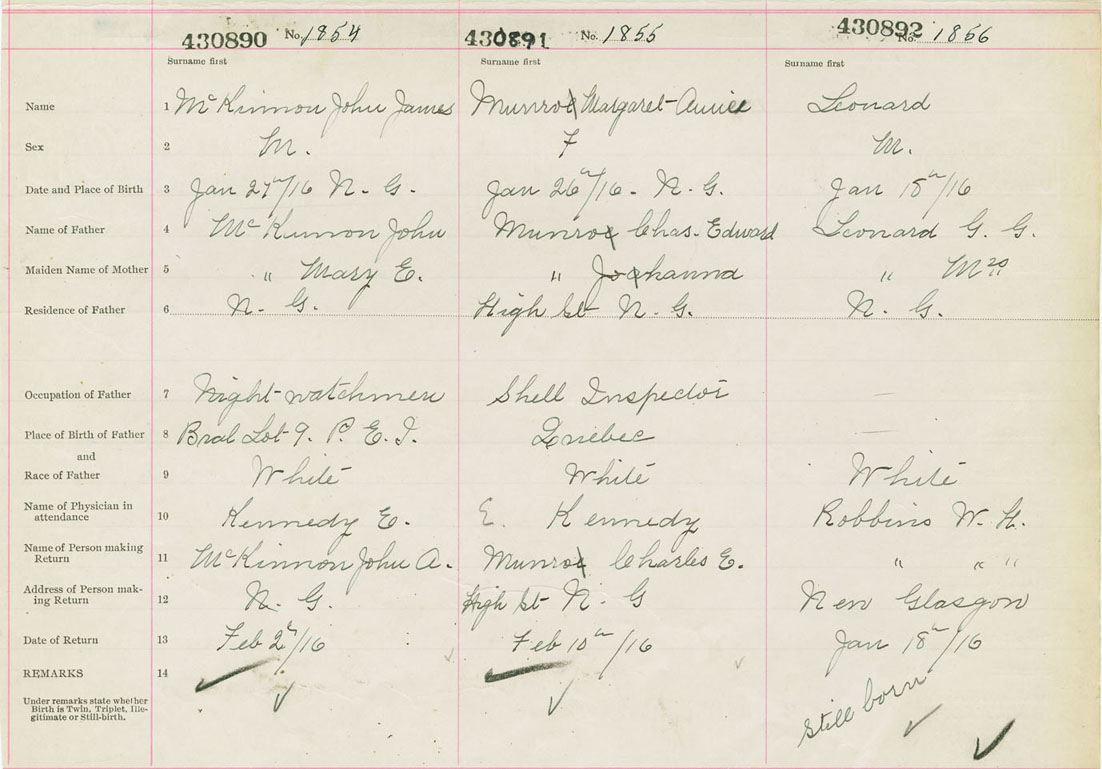 430890 No. 1854 430891 No. 1855 430892 No. 1856
Surname first Surname first Surname first
Name 1 McKinnon John James Munroe Margaret Annice Leonard
Sex 2 M. F M.
Date and Place of Birth 3 Jan 27th/16 N. G. Jan 26th/16 - N. G. Jan 18th/16
Name of Father 4 McKinnon John Munroe Chas. Edward Leonard G. G.
Maiden Name of Mother 5 " Mary E. " Johanna " Mrs
Residence of Father 6 N. G. High St N. G. N. G.
Occupation of Father 7 Night watchmen Shell Inspector —
Place of Birth of Father 8 Lot 9. P. E. I. Quebec —
and
Race of Father 9 White White White
Name of Physician in
attendance 10 Kennedy E. E. Kennedy Robbins W. H.
Name of Person making
Return 11 McKinnon John A. Munroe Charles E. " " "
Address of Person mak-
ing Return 12 N. G. High St N. G New Glasgow
Date of Return 13 Feb 2th/16 Feb 10th/16 Jan 18th/16
REMARKS 14
Under remarks state whether
Birth is Twin, Triplet, Ille-
gitimate or Still-birth.
Still born